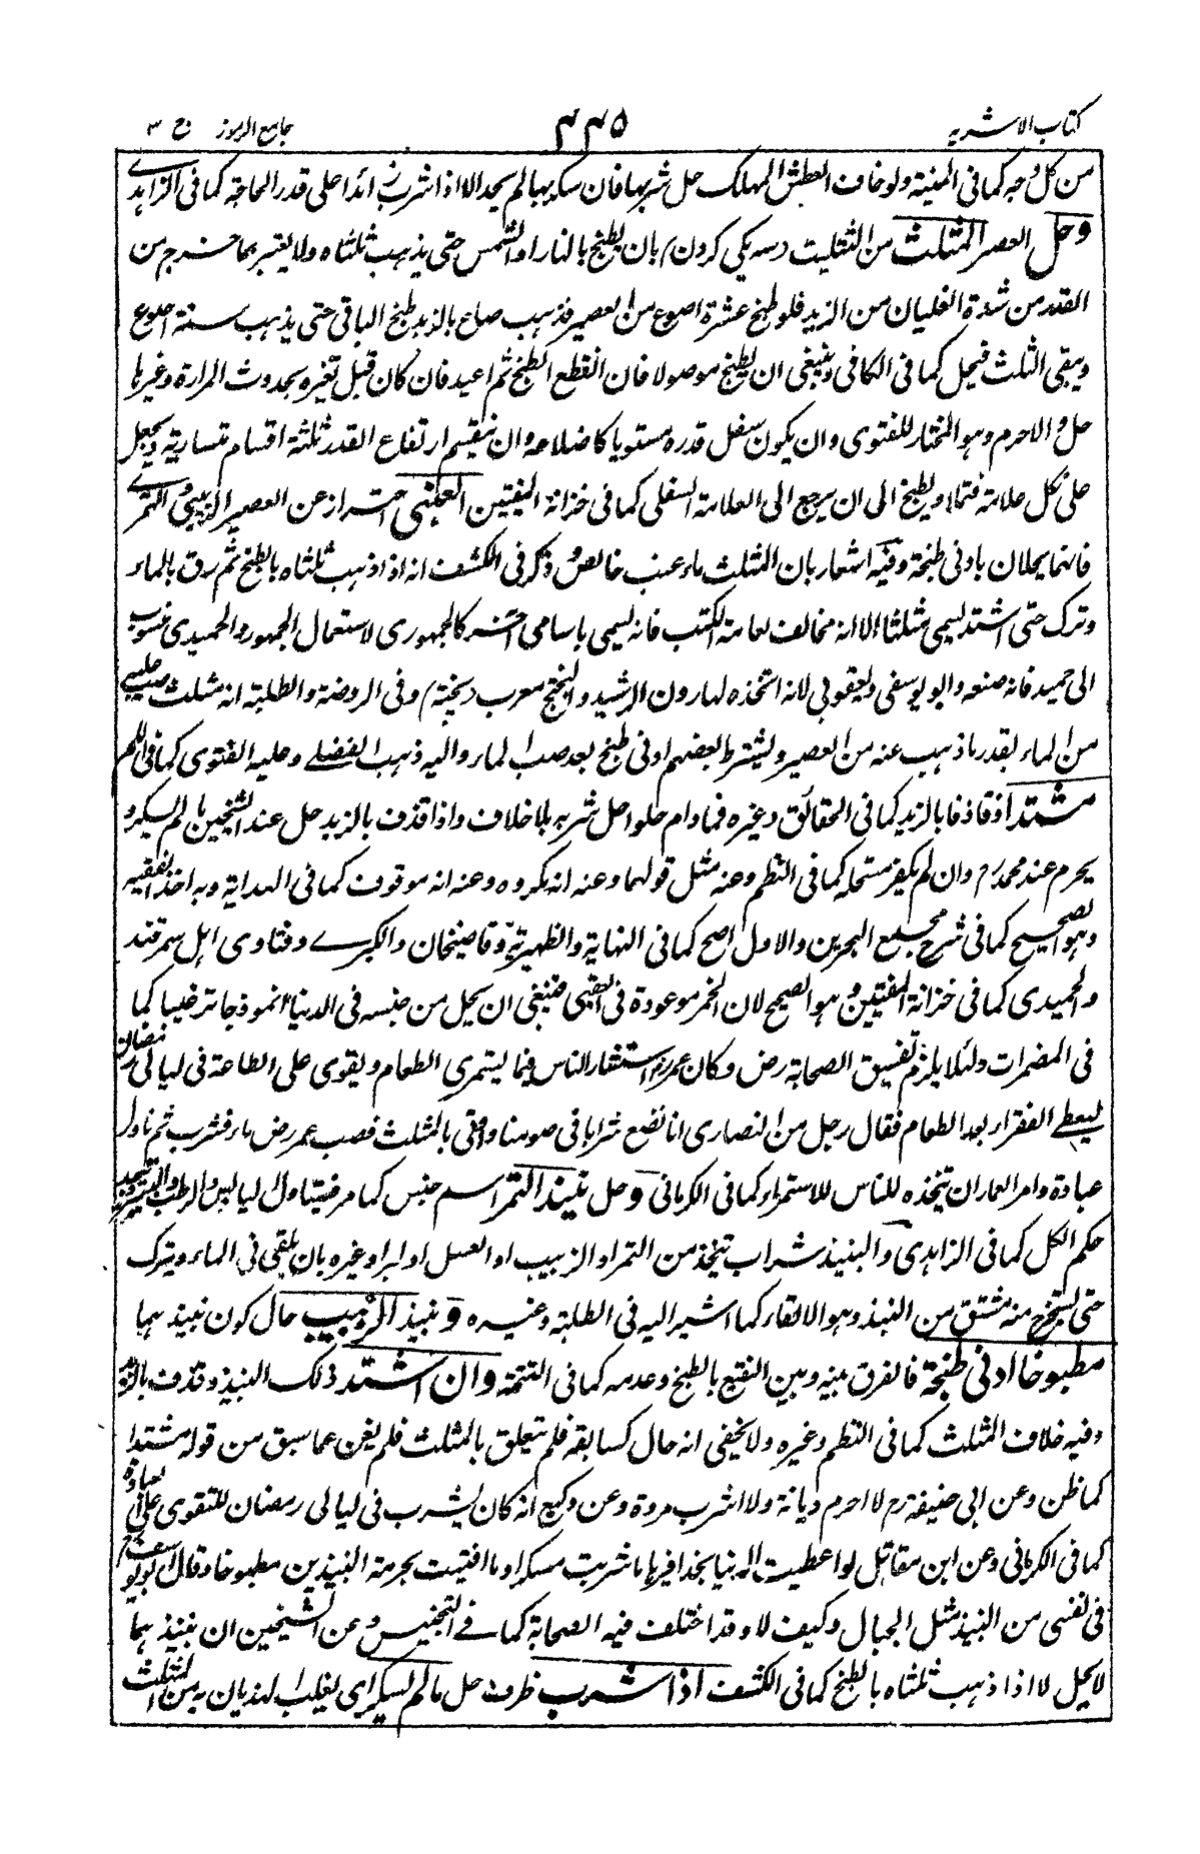 كتاب الاشربه ٤٤٥ جامع الرموز ج ٣
من كل وجه كما فى المنية ولو خاف العطش المهلك حل شربها فان سكر بها لم يحد الا اذا شرب زائدا على قدر الحاجة كما فى الزاهدى
وحل العصر المثلث من التثليث (سه يكى كردن) بان يطبخ بالنار او الشمس حتى يذهب ثلثاه ولا يعتبر بما خرج من
القدر من شدة الغليان من الزبد فلو طبخ عشرة اصوع من العصير فذهب صاع بالزبد طبخ الباقى حتى يذهب ستة اصوع
ويبقى الثلث فيحل كما فى الكافى وينبغى ان يطبخ موصولا فان انقطع الطبخ ثم اعيد فان كان قبل تغيره بحدوث المرارة وغيرها
حل والا حرم وهو المختار للفتوى وان يكون سفل قدره مستويا كاضلاعه وان ينقسم ارتفاع القدر ثلثة اقسام متساوية ويجعل
على كل علامة فتملأ ويطبخ الى ان يرجع الى العلامة السفلى كما فى خزانة المفتين العنبى احتراز عن العصير الزبيبى والتمرى
فانهما يحلان بادنى طبخة وفيه اشعار بان المثلث ماء عنب خالص وذكر فى الكشف انه اذا ذهب ثلثاه بالطبخ ثم رق بالماء
وترك حتى اشتد يسمى مثلثا الا انه مخالف لعامة الكتب فانه يسمى باسامى اخر كالجمهورى لاستعمال الجمهور والحميدى منسوب
الى حميد فانه صنعه وابو يوسفى ويعقوبى لانه اتخذه لهارون الرشيد والبختج معرب (پخته) وفى الروضة والطلبة انه مثلث صب عليه
من الماء بقدر ما ذهب عنه من العصير ويشترط بعضهم ادنى طبخ بعد صب الماء واليه ذهب الفضلى وعليه الفتوى كما فى
مشتدا اذ قاذفا بالزبد كما فى الحقائق وغيره فما دام حلوا حل شربه بلا خلاف واذا قذف بالزبد حل عند الشيخين ما لم يسكر و
يحرم عند محمد رح وان لم يكفر مستحله كما فى النظم وعنه مثل قولهما وعنه انه يكروه وعنه انه موقوف كما فى الهداية وبه اخذ الفقيه
وهو الصحيح كما فى شرح مجمع البحرين والاول اصح كما فى النهاية والظهيرية وقاضيخان والكبرى وفتاوى اهل سمرقند
والحميدى كما فى خزانة المفتين وهو الصحيح لان الخمر موعودة فى العقبى فينبغى ان يحل من جنسه فى الدنيا انموذجا ترغيبا كما
فى المضمرات ولئلا يلزم تفسيق الصحابة رض وكان عمر رض استشار الناس فيما يستمرى الطعام ويقوى على الطاعة فى ليالى رمضان
ليعطى الفقراء بعد الطعام فقال رجل من النصارى انا نصنع شرابا فى صومنا واتى بالمثلث فصب عمر رض ماء فشرب ثم ناول
عبادة وامر العمار ان يتخذه للناس للاستمراء كما فى الكرمانى وحل نبيذ التمر اسم جنس كما مر فيتناول اليابس والرطب والبسر
حكم الكل كما فى الزاهدى والنبيذ شراب يتخذ من التمر او الزبيب او العسل او البر او غيره بان يلقى فى الماء ويترك
حتى يستخرج منه مشتق من النبذ وهو الالقاء كما اشير اليه فى الطلبة وغيره ونبيذ الزبيب حال كون نبيذهما
مطبوخا ادنى طبخة فالفرق بينه وبين النقيع بالطبخ وعدمه كما فى التتمة وان اشتد ذلك النبيذ وقذف بالزبد
وفيه خلاف المثلث كما فى النظم وغيره ولا يخفى انه حال كسابقه فلم يتعلق بالمثلث فلم يغن عما سبق من قوله مشتدا
كما ظن وعن ابى حنيفة رح لا احرم ديانة ولا اشرب مروة وعن وكيع انه كان يشرب فى ليالى رمضان للتقوى على العبادة
كما فى الكرمانى وعن ابن مقاتل لو اعطيت الدنيا بحذافيرها ما شربت مسكرا وما افتيت بحرمة النبيذين مطبوخا وقال ابو يوسف رح
فى نفسى من النبيذ مثل الجبال وكيف لا وقد اختلف فيه الصحابة كما فى التجنيس وعن الشيخين ان نبيذهما
لا يحل الا اذا ذهب ثلثاه بالطبخ كما فى الكشف اذا شرب ظرف حل ما لم يسكر اى يغلب الهذيان به من المثلث